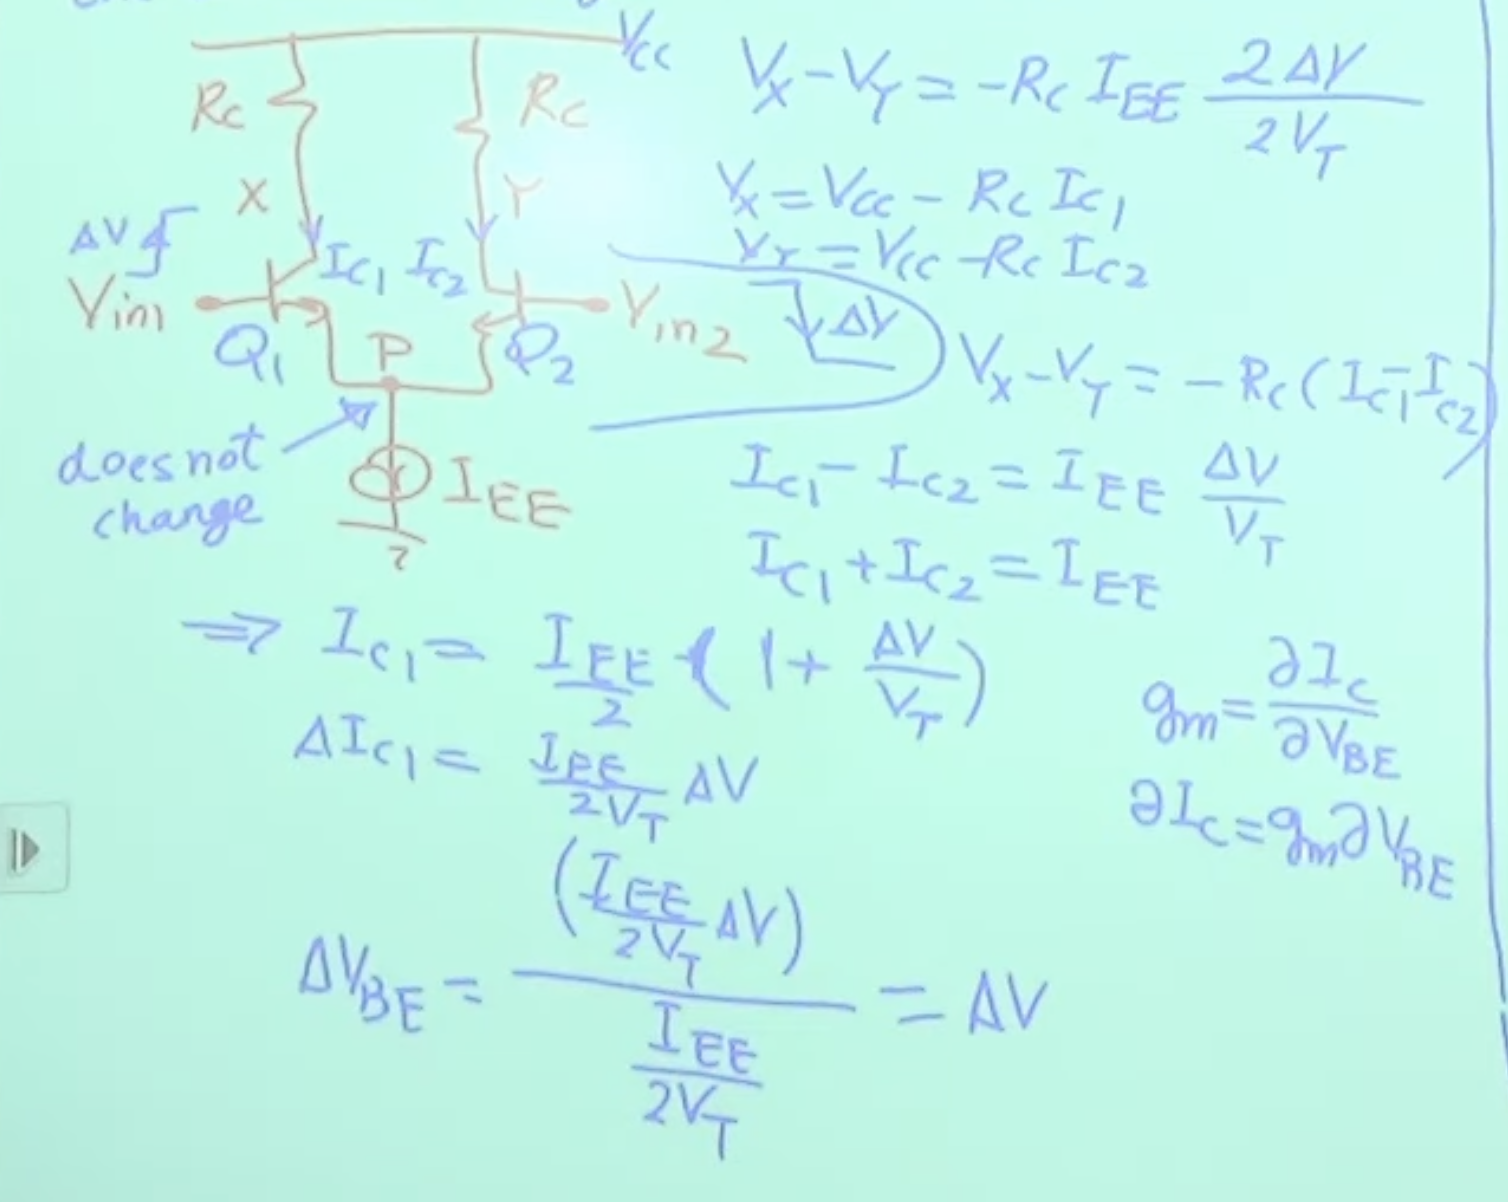 Vcc
Rc
Rc
X
Y
ΔV
Vin1
Ic1
Ic2
Vin2
ΔV
Q1
P
Q2
does not
change
IEE
Vx - VY = -Rc IEE 2ΔV / 2VT
Vx = Vcc - Rc Ic1
VY = Vcc - Rc Ic2
Vx - VY = - Rc (Ic1 - Ic2)
Ic1 - Ic2 = IEE ΔV / VT
Ic1 + Ic2 = IEE
⇒ Ic1 = IEE / 2 (1 + ΔV / VT)
ΔIc1 = IEE / 2VT ΔV
gm = ∂Ic / ∂VBE
∂Ic = gm ∂VBE
ΔVBE = (IEE / 2VT ΔV) / (IEE / 2VT) = ΔV